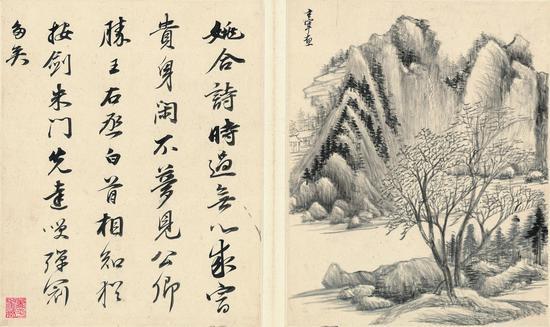 姚合詩時過無心求富
貴身閑不夢見公卿
勝王右丞白首相知猶
按劍朱門先達笑彈冠
多矣
玄宰畫